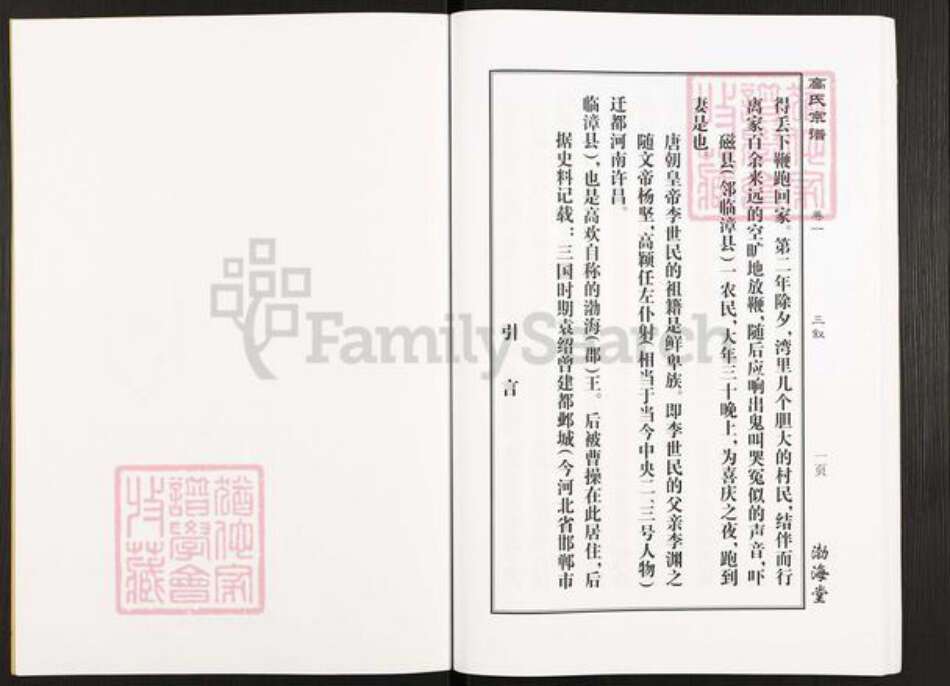 引言
据史料记载：三国时期袁绍曾建都邺城(今河北省邯郸市
临漳县)，也是高欢自称的渤海(郡)王。后被曹操在此居住，后
迁都河南许昌。
随文帝杨坚，高颖任左仆射(相当于当今中央二、三号人物)
唐朝皇帝李世民的祖籍是鲜卑族。即李世民的父亲李渊之
妻是也
磁县(邻临漳县)一农民，大年三十晚上，为喜庆之夜，跑到
离家百余米远的空旷地放鞭，随后应响出鬼叫哭冤似的声音，吓
得丢下鞭跑回家。第二年除夕，湾里几个胆大的村民，结伴而行
高氏宗谱 卷一 三叙 一页 渤海堂
猶他家
譜學會
收藏
猶他家
譜學會
收藏
FamilySearch